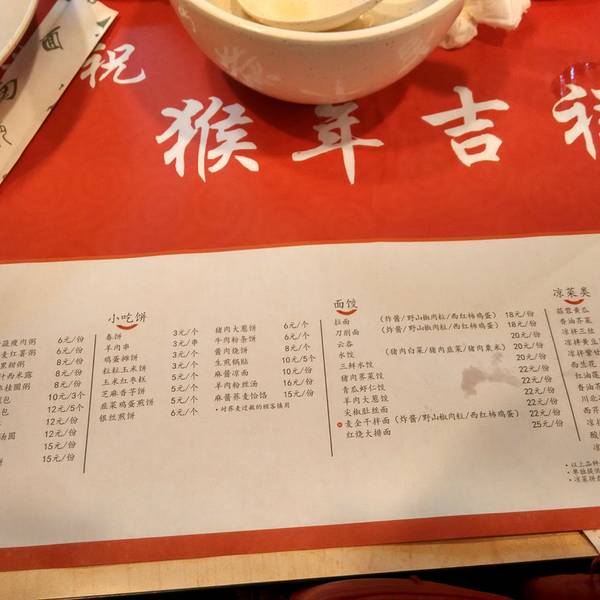 祝
猴年吉祥
蔬瘦肉粥 6元/份
麦红薯粥 6元/份
黑糊粥 8元/份
西米露 8元/份
枣桂圆粥 8元/份
包 10元/3个
包 12元/5个
12元/份
汤圆 12元/份
15元/份
饼 15元/份
小吃饼
春饼 3元/个
羊肉串 3元/串
鸡蛋姆饼 3元/个
粒粒玉米饼 5元/个
玉米红枣糕 5元/个
芝麻香芋饼 5元/个
韭菜鸡蛋煎饼 6元/个
银丝煎饼 6元/个
猪肉大葱饼 6元/个
牛肉粉条饼 6元/个
酱肉烧饼 8元/个
生煎锅贴 10元/5个
麻酱凉面 10元/份
羊肉粉丝汤 16元/份
麻酱荞麦饸饹 15元/份
• 对荞麦过敏的顾客慎用
面饺
拉面 (炸酱/野山椒肉粒/西红柿鸡蛋) 18元/份
刀削面 (炸酱/野山椒肉粒/西红柿鸡蛋) 18元/份
云吞 20元/份
水饺 (猪肉白菜/猪肉韭菜/猪肉粟米) 20元/份
三鲜水饺 22元/份
猪肉荠菜饺 22元/份
青瓜虾仁饺 22元/份
羊肉大葱饺 22元/份
尖椒肚丝面 22元/份
麦全干拌面 (炸酱/野山椒肉粒/西红柿鸡蛋) 22元/份
红烧大排面 25元/份
凉菜类
蒜蓉黄瓜
香油芥菜
凉拌三丝
凉拌黄豆
凉拌
西兰花
红油莲
香油
川北
凉
凉拌
酸
凉
• 以上品种
• 单独提供
• 凉菜拼盘